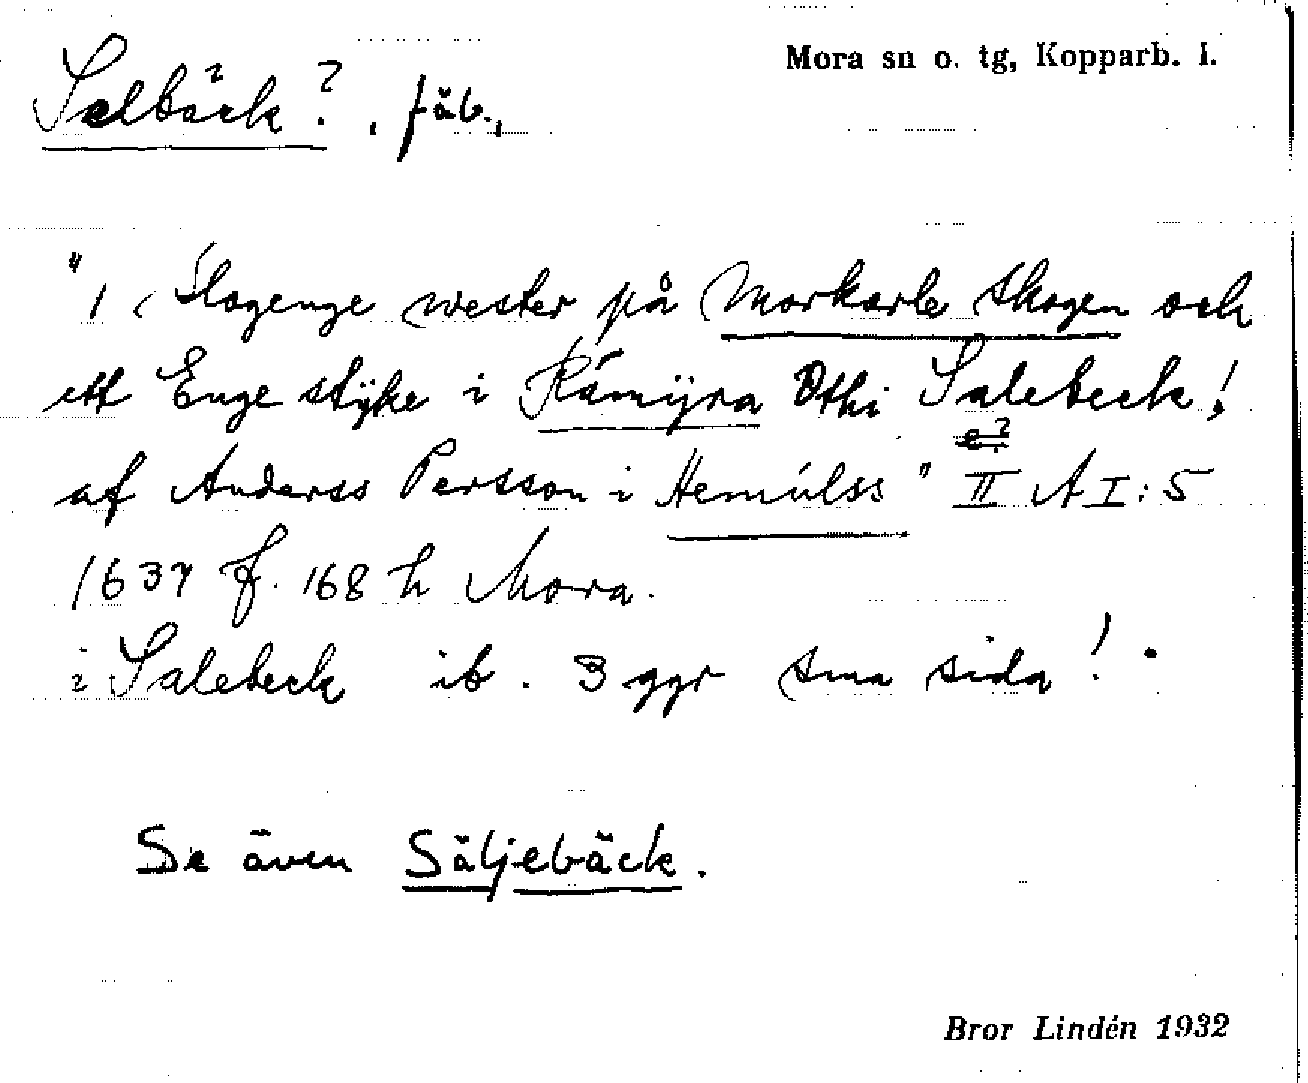 Mora sn o. tg, Kopparb. l.
Selbäck?, fäb.,
"1 Slogenge wester på Morkarle skogen och
ett Enge stÿke i Råmÿra Othi Salebeck!
e?
af Anderss Persson i Hemúlss" II A I:5
1637 f. 168 h Mora.
i Salebeck ib. 3 ggr sma sida!
Se även Säljebäck.
Bror Lindén 1932